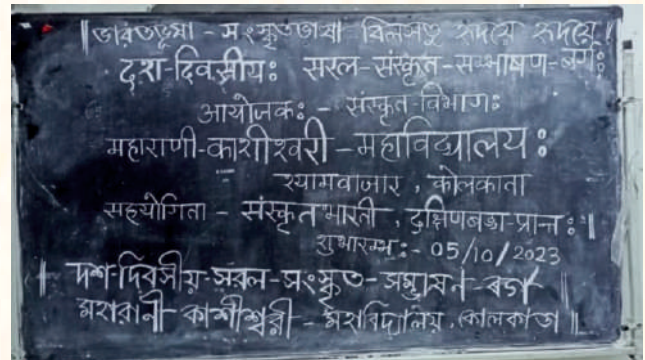 ॥ ভারতভূষা - সংস্কৃতভাষা বিলসতু হৃদয়ে হৃদয়ে ॥
दश-दिवसीयः सरल-संस्कृत-सम्भाषण-वर्गः
आयोजकः - संस्कृत-विभागः
महाराणी-काशीश्वरी - महाविद्यालयः
श्यामवाजार, कोलकाता
सहयोगिता - संस्कृतभारती, दक्षिणबङ्ग-प्रान्तः ॥
शुभारम्भः - 05/10/2023
॥ দশ-দিবসীয়-সরল-সংস্কৃত-সম্ভাষন-বর্গ
মহারানী কাশীশ্বরী - মহাবিদ্যালয়, কোলকাতা ॥